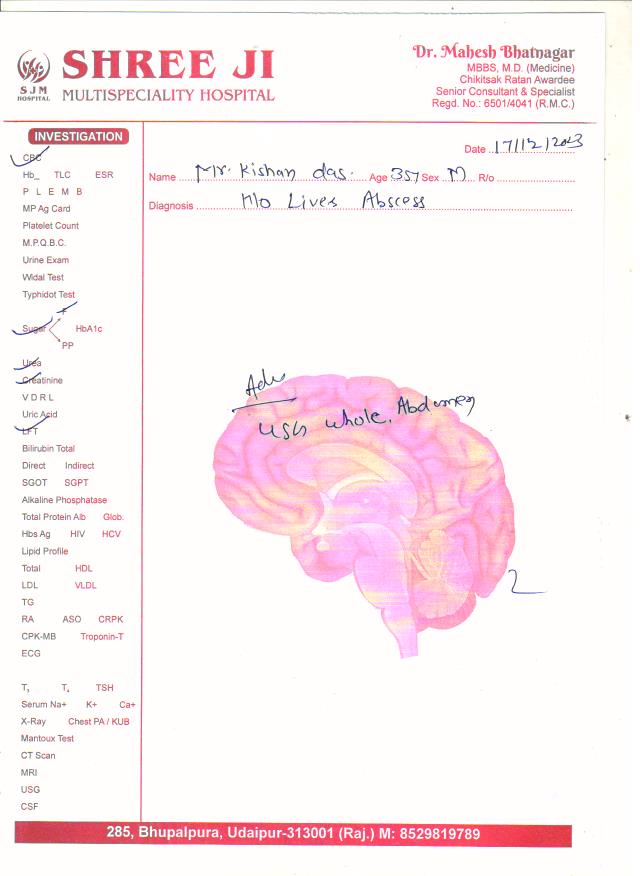 SHREE JI
MULTISPECIALITY HOSPITAL
SJM
HOSPITAL
Dr. Mahesh Bhatnagar
MBBS, M.D. (Medicine)
Chikitsak Ratan Awardee
Senior Consultant & Specialist
Regd. No.: 6501/4041 (R.M.C.)
INVESTIGATION
Date 17/12/2023
Name Mr. Kishan das. Age 35y Sex M R/o
Diagnosis H/o Liver Abscess
CBC
Hb_ TLC ESR
P L E M B
MP Ag Card
Platelet Count
M.P.Q.B.C.
Urine Exam
Widal Test
Typhidot Test
F
Sugar HbA1c
PP
Urea
Creatinine
V D R L
Uric Acid
LFT
Adv
USG whole Abdomen
Bilirubin Total
Direct Indirect
SGOT SGPT
Alkaline Phosphatase
Total Protein Alb Glob.
Hbs Ag HIV HCV
Lipid Profile
Total HDL
LDL VLDL
TG
RA ASO CRPK
CPK-MB Troponin-T
ECG
T₃ T₄ TSH
Serum Na+ K+ Ca+
X-Ray Chest PA / KUB
Mantoux Test
CT Scan
MRI
USG
CSF
285, Bhupalpura, Udaipur-313001 (Raj.) M: 8529819789